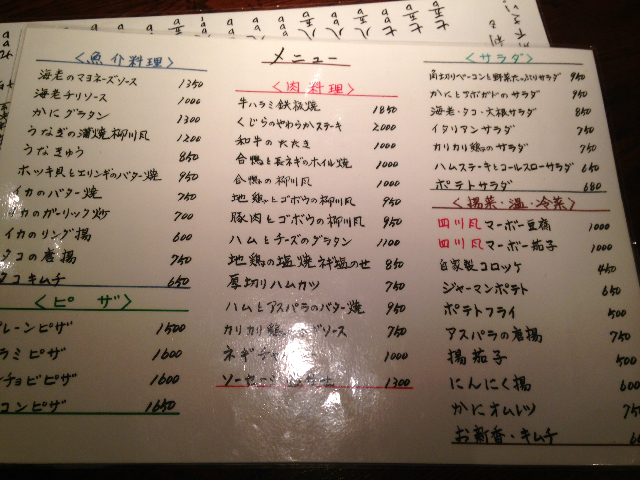 メニュー
<魚介料理>
海老のマヨネーズソース 1350
海老チリソース 1000
かにグラタン 1300
うなぎの蒲焼柳川風 1200
うなきゅう 850
ホッキ貝とエリンギのバター焼 950
イカのバター焼 750
イカのガーリック炒 700
イカのリング揚 600
タコの唐揚 750
タコキムチ 650
<ピザ>
プレーンピザ 1500
ラミピザ 1600
ンチョビピザ 1600
コンピザ 1650
<肉料理>
牛ハラミ鉄板焼 1850
くじらのやわらかステーキ 2000
和牛のたたき 1000
合鴨と長ネギのホイル焼 1000
合鴨の柳川風 1000
地鶏とゴボウの柳川風 950
豚肉とゴボウの柳川風 950
ハムとチーズのグラタン 1100
地鶏の塩焼 850
厚切りハムカツ 750
ハムとアスパラのバター焼 950
カリカリ鶏 ソース 750
ネギチャ 1000
ソーセージ 1300
<サラダ>
角切りベーコンと野菜たっぷりサラダ 950
かにとアボガドのサラダ 950
海老・タコ・大根サラダ 850
イタリアンサラダ 750
カリカリ鶏のサラダ 750
ハムステーキとコールスローサラダ 650
ポテトサラダ 680
<揚菜・温・冷菜>
四川風マーボー豆腐 1000
四川風マーボー茄子 1000
自家製コロッケ 450
ジャーマンポテト 650
ポテトフライ 500
アスパラの唐揚 750
揚茄子 500
にんにく揚 600
かにオムレツ 75
お新香・キムチ